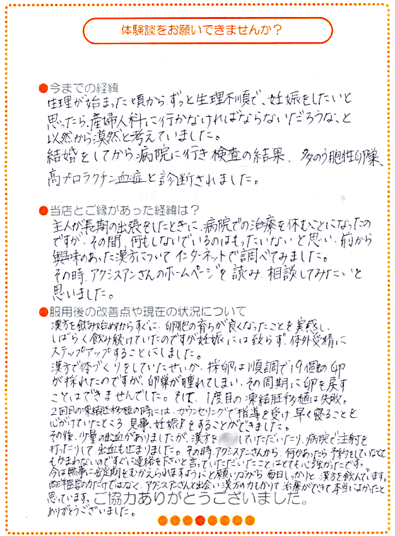 体験談をお願いできませんか？
●今までの経緯
生理が始まった頃からずっと生理不順で、妊娠をしたいと
思ったら産婦人科に行かなければならないだろうな、と
以前から漠然と考えていました。
結婚をしてから病院に行き検査の結果、多のう胞性卵巣、
高プロラクチン血症と診断されました。
●当店とご縁があった経緯は？
主人が長期の出張をしたときに、病院での治療を休むことになったの
ですが、その間、何もしないでいるのはもったいないと思い、前から
興味のあった漢方についてインターネットで調べてみました。
その時、アクシスアンさんのホームページを読み、相談してみたいと
思いました。
●服用後の改善点や現在の状況について
漢方を飲み始めてからすぐに、卵胞の育ちが良くなったことを実感し、
しばらく飲み続けていたのですが妊娠には至らず、体外受精に
ステップアップすることにしました。
漢方で体づくりをしていたせいか、採卵は順調で19個の卵
が採れたのですが、卵巣が腫れてしまい、その周期に卵を戻す
ことはできませんでした。そして、1度目の凍結胚移植は失敗。
2回目の凍結胚移植の時には、カウンセリングで指導を受け、早く寝ることを
心がけていたところ、見事、妊娠することができました。
その後、少量の出血がありましたが、漢方を していただいたり、病院で注射を
打ったりして出血も止まりました。その時アクシスアンさんから、何かあったら予約をしていなくて
もかまわないのですぐに連絡を下さいと言っていただいたことはとても心強かったです。
今は無事に安定期をむかえられますようにと願いながら毎日しっかりと漢方を飲んでいます。
西洋医学の力だけではなく、アクシスアンさんと出会い漢方の力もかりて治療ができて本当によかったと
思っています。
ご協力ありがとうございました。
ありがとうございました。